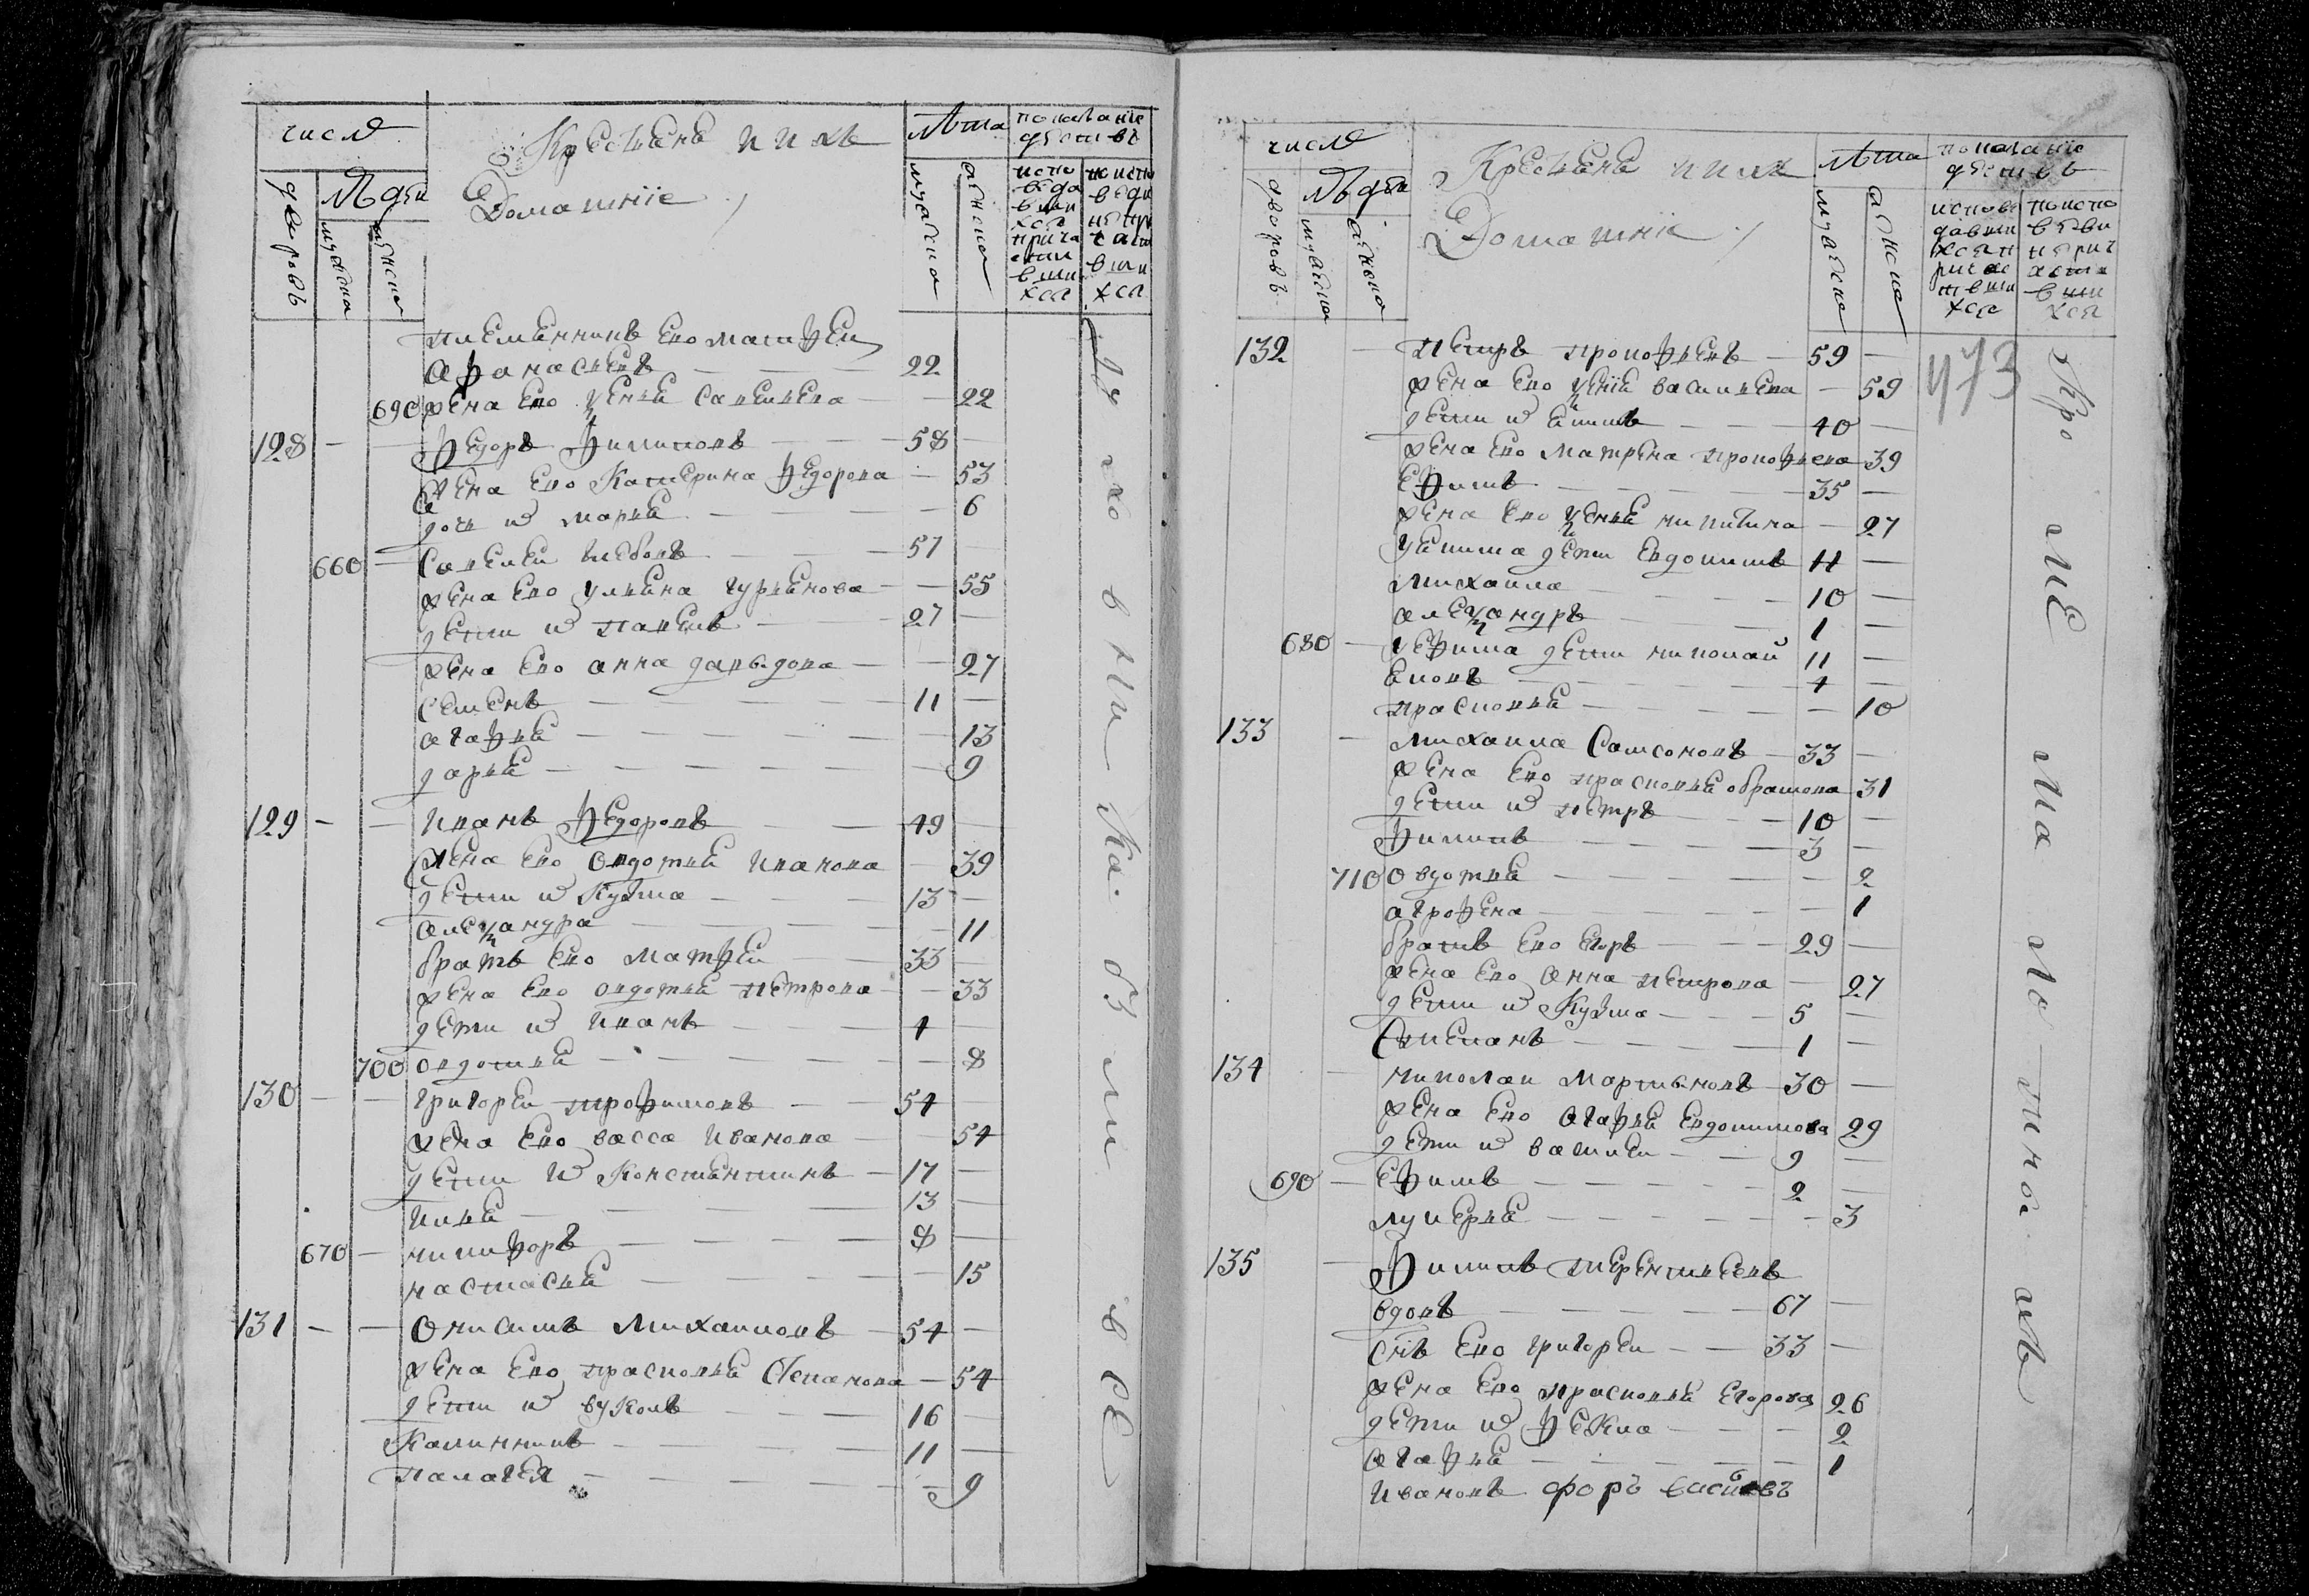 числѡ
Крестьяне и ихъ
Домашнїе
лѣта
показанїе
дѣиствъ
дворовъ
людеи
мужеска
женска
мужеска
женска
племянникъ его матфеи
афанасьевъ 22
690 жена его ксенья савельева 22
128 федоръ филиповъ 58
жена его Катерина федорова 53
дочь их марья 6
660 Савелеи глебовъ 57
жена его ульяна гурьянова 55
дети их павелъ 27
жена его анна давыдова 27
семенъ 11
агафья 13
дарья 9
129 иванъ федоровъ 49
жена его овдотья иванова 39
дети их Кузма 13
александра 11
братъ его матфеи 33
жена его овдотья петрова 33
дети их иванъ 4
700 овдотья 8
130 григореи трофимовъ 54
жена его васса иванова 54
дети их Константинъ 17
илья 13
670 никифоръ 8
настасья 15
131 Онисимъ михаиловъ 54
жена его прасковья Степанова 54
дети их вуколъ 16
Калинникъ 11
палагея 9
числѡ
Крестьяне и их
Домашнїе
лѣта
показанїе
дѣиствъ
дворовъ
людеи
мужеска
женска
мужеска
женска
132 петръ прокофьевъ 59
жена его ксенїя васильева 59
дети их екимъ 40
жена его матрена прокофьева 39
ефимъ 35
жена его ксенья никитина 27
У екима дети евдокимъ 11
михаила 10
александръ 1
680 У ефима дети николаи 11
яковъ 4
прасковья 10
133 михаила Самсоновъ 33
жена его прасковья абрамова 31
дети их петръ 10
филипъ 3
710 овдотья 2
аграфена 1
братъ его егоръ 29
жена его анна петрова 27
дети их Кузма 5
Степанъ 1
134 николаи мартыновъ 30
жена его агафья евдокимова 29
дети их василеи 9
690 ефимъ 2
лукерья 3
135 филипъ терентьевъ
вдовъ 67
снъ его григореи 33
жена его прасковья егорова 26
дети их фекла 2
агафья 1
473